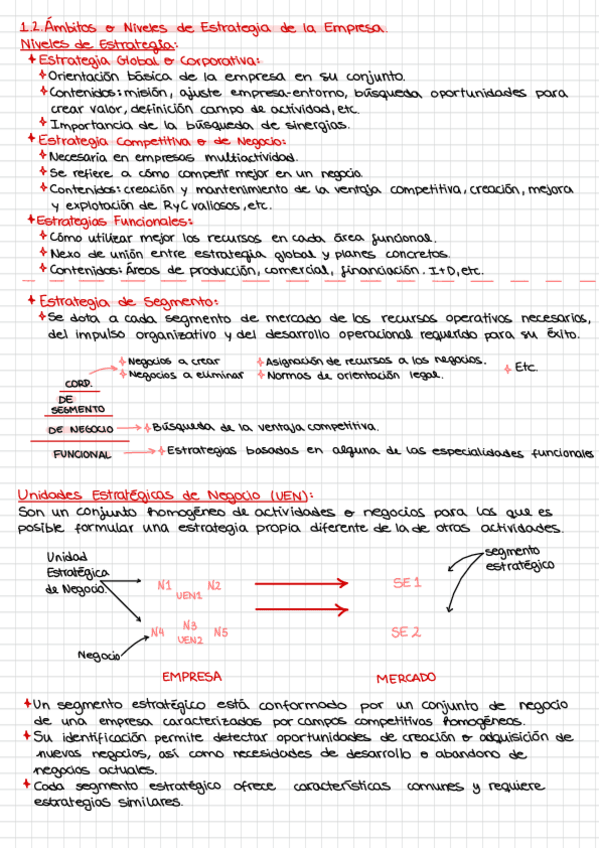 1.2. Ámbitos o Niveles de Estrategia de la Empresa.
Niveles de Estrategia:
+ Estrategia Global o Corporativa:
+ Orientación básica de la empresa en su conjunto.
+ Contenidos: misión, ajuste empresa-entorno, búsqueda oportunidades para
crear valor, definición campo de actividad, etc.
+ Importancia de la búsqueda de sinergias.
+ Estrategia Competitiva o de Negocio:
+ Necesaria en empresas multiactividad.
+ Se refiere a cómo competir mejor en un negocio.
+ Contenidos: creación y mantenimiento de la ventaja competitiva, creación, mejora
y explotación de RyC valiosos, etc.
+ Estrategias Funcionales:
+ Cómo utilizar mejor los recursos en cada área funcional.
+ Nexo de unión entre estrategia global y planes concretos.
+ Contenidos: Áreas de producción, comercial, financiación. I+D, etc.
+ Estrategia de Segmento:
+ Se dota a cada segmento de mercado de los recursos operativos necesarios,
del impulso organizativo y del desarrollo operacional requerido para su éxito.
+ Negocios a crear + Asignación de recursos a los negocios. + Etc.
+ Negocios a eliminar + Normas de orientación legal.
CORD.
DE
SEGMENTO
DE NEGOCIO + Búsqueda de la ventaja competitiva.
FUNCIONAL + Estrategias basadas en alguna de las especialidades funcionales
Unidades Estratégicas de Negocio (UEN):
Son un conjunto homogéneo de actividades o negocios para los que es
posible formular una estrategia propia diferente de la de otras actividades.
Unidad
Estratégica
de Negocio.
segmento
estratégico
N1 N2
UEN1
SE 1
N4 N3 N5
UEN2
SE 2
Negocio
EMPRESA MERCADO
+ Un segmento estratégico está conformado por un conjunto de negocio
de una empresa caracterizados por campos competitivas homogéneas.
+ Su identificación permite detectar oportunidades de creación o adquisición de
nuevas negocios, así como necesidades de desarrollo o abandono de
negocios actuales.
+ Cada segmento estratégico ofrece características comunes y requiere
estrategias similares.